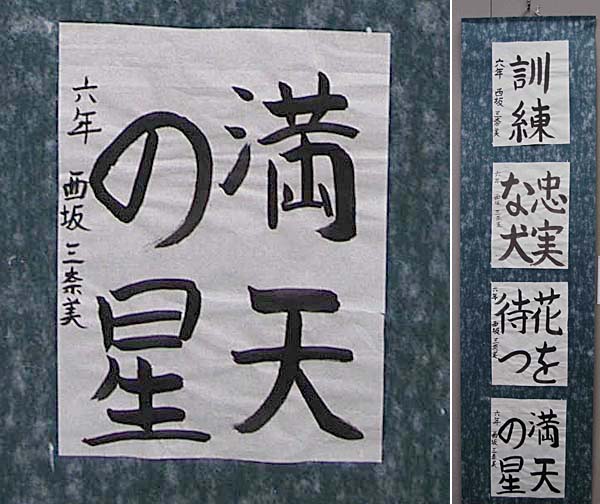 満天
の星
六年 西坂 三奈美
訓練
六年 西坂 三奈美
忠実
な犬
六年 西坂 三奈美
花を
待つ
六年 西坂 三奈美
満天
の星
六年 西坂 三奈美